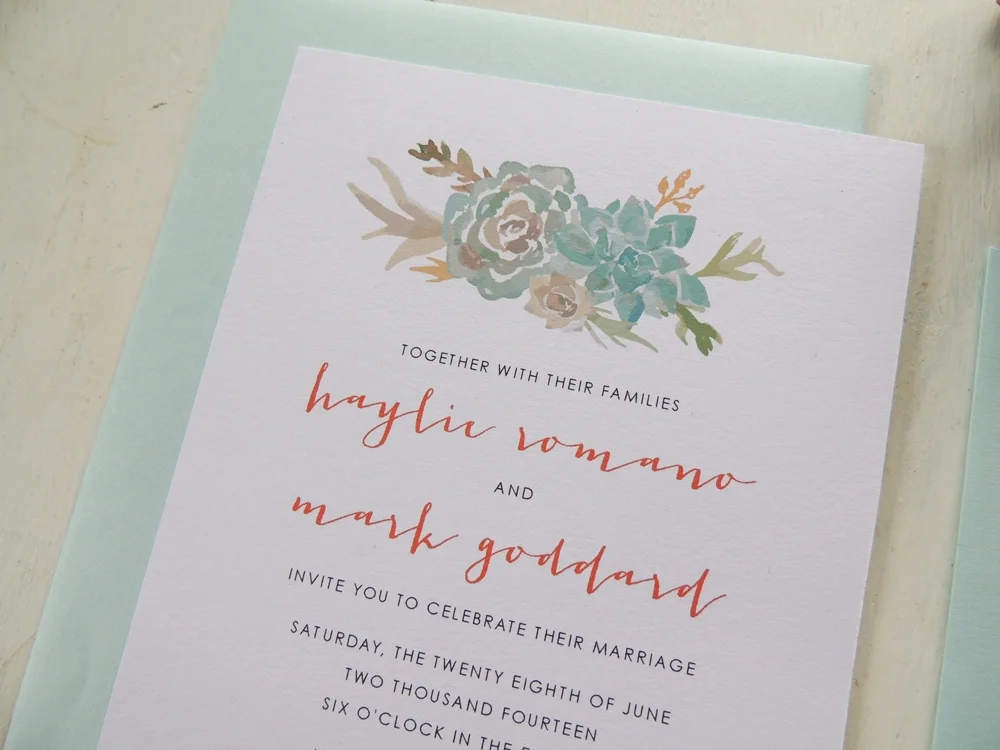 TOGETHER WITH THEIR FAMILIES
haylie romano
AND
mark goddard
INVITE YOU TO CELEBRATE THEIR MARRIAGE
SATURDAY, THE TWENTY EIGHTH OF JUNE
TWO THOUSAND FOURTEEN
SIX O'CLOCK IN THE